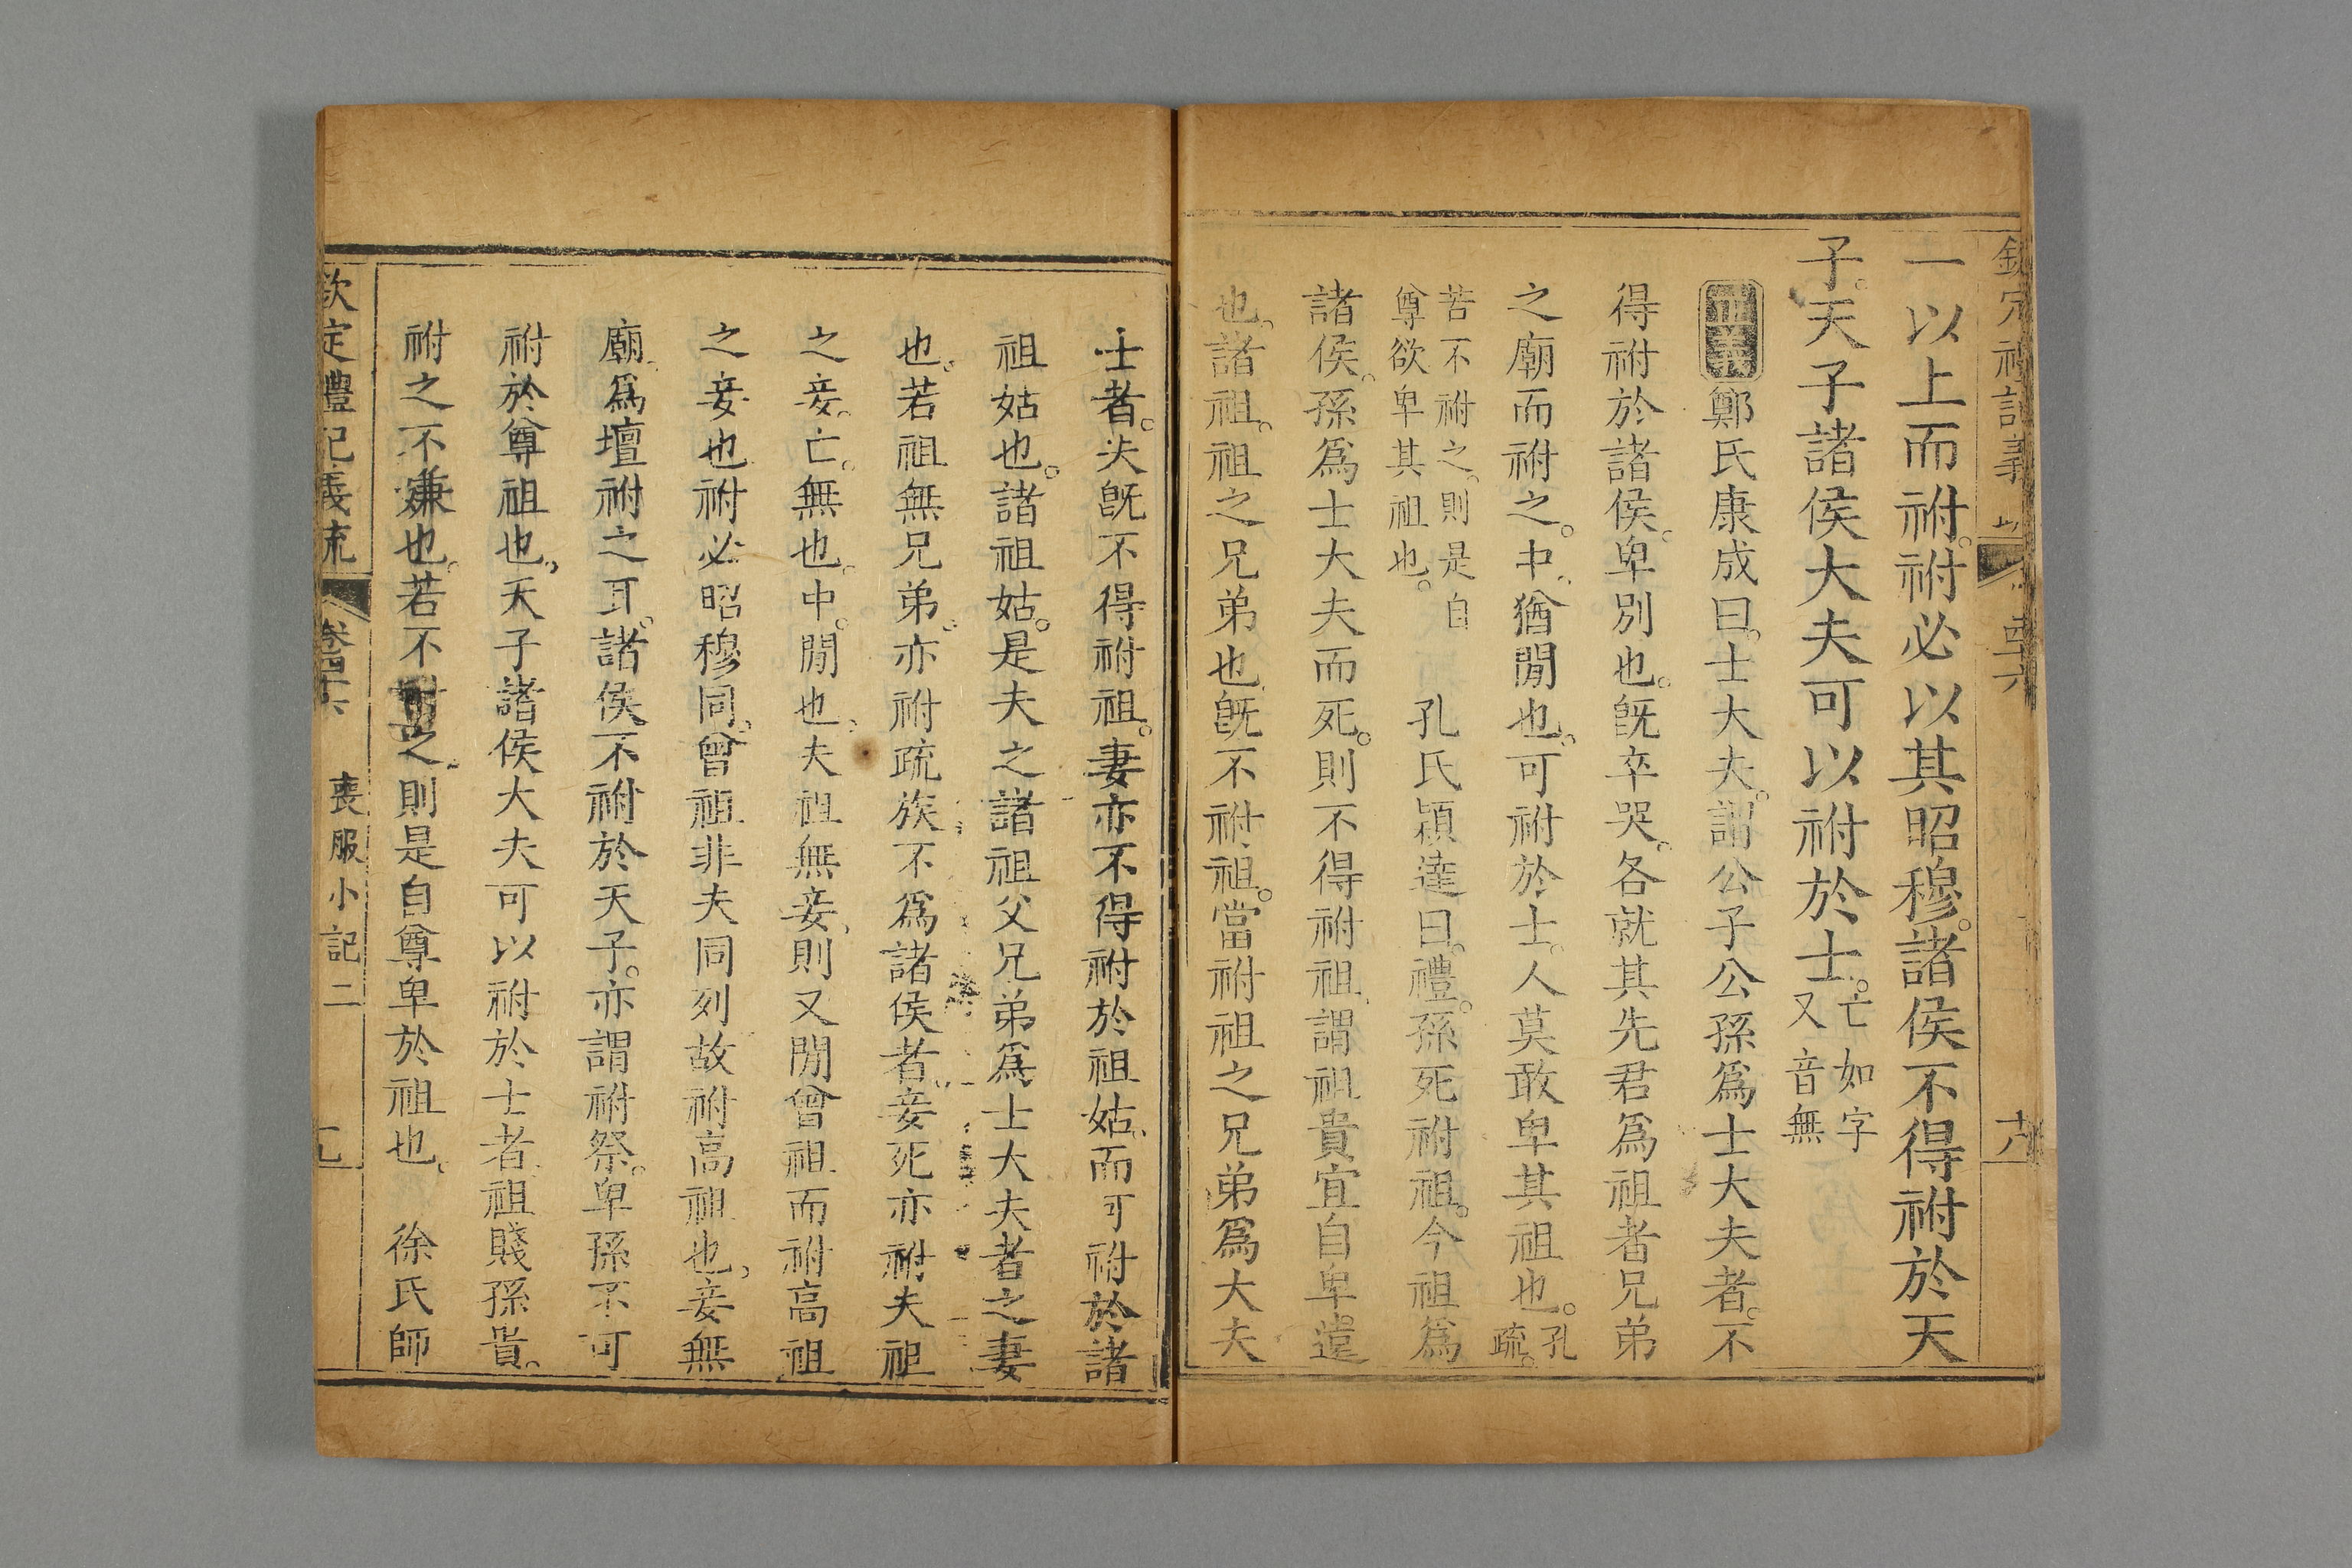 一以上而祔。祔必以其昭穆。諸侯不得祔於天
子。天子諸侯大夫可以祔於士。亡如字又音無
正義鄭氏康成曰。士大夫。謂公子公孫爲士大夫者。不
得祔於諸侯。卑別也。旣卒哭。各就其先君爲祖者兄弟
之廟而祔之。中、猶閒也。可祔於士。人莫敢卑其祖也。孔疏。
若不祔之。則是自尊欲卑其祖也。孔氏穎達曰。禮。孫死祔祖。今祖爲
諸侯。孫爲士大夫而死。則不得祔祖、謂祖貴宜自卑。遠
也。諸祖。祖之兄弟也、旣不祔祖。當祔祖之兄弟爲大夫
士者。夫旣不得祔祖。妻亦不得祔於祖姑。而可祔於諸
祖姑也。諸祖姑。是夫之諸祖父兄弟爲士大夫者之妻
也。若祖無兄弟。亦祔疏族不爲諸侯者。妾死亦祔夫祖
之妾。亡。無也。中。閒也、夫祖無妾、則又閒曾祖而祔高祖
之妾也祔必昭穆同、曾祖非夫同列故祔高祖也、妾無
廟、爲壇祔之耳。諸侯不祔於天子。亦謂祔祭。卑孫不可
祔於尊祖也、天子諸侯大夫可以祔於士者、祖賤孫貴。
祔之不嫌也。若不祔之。則是自尊卑於祖也。　徐氏師
欽定禮記義疏　卷四十六　喪服小記二